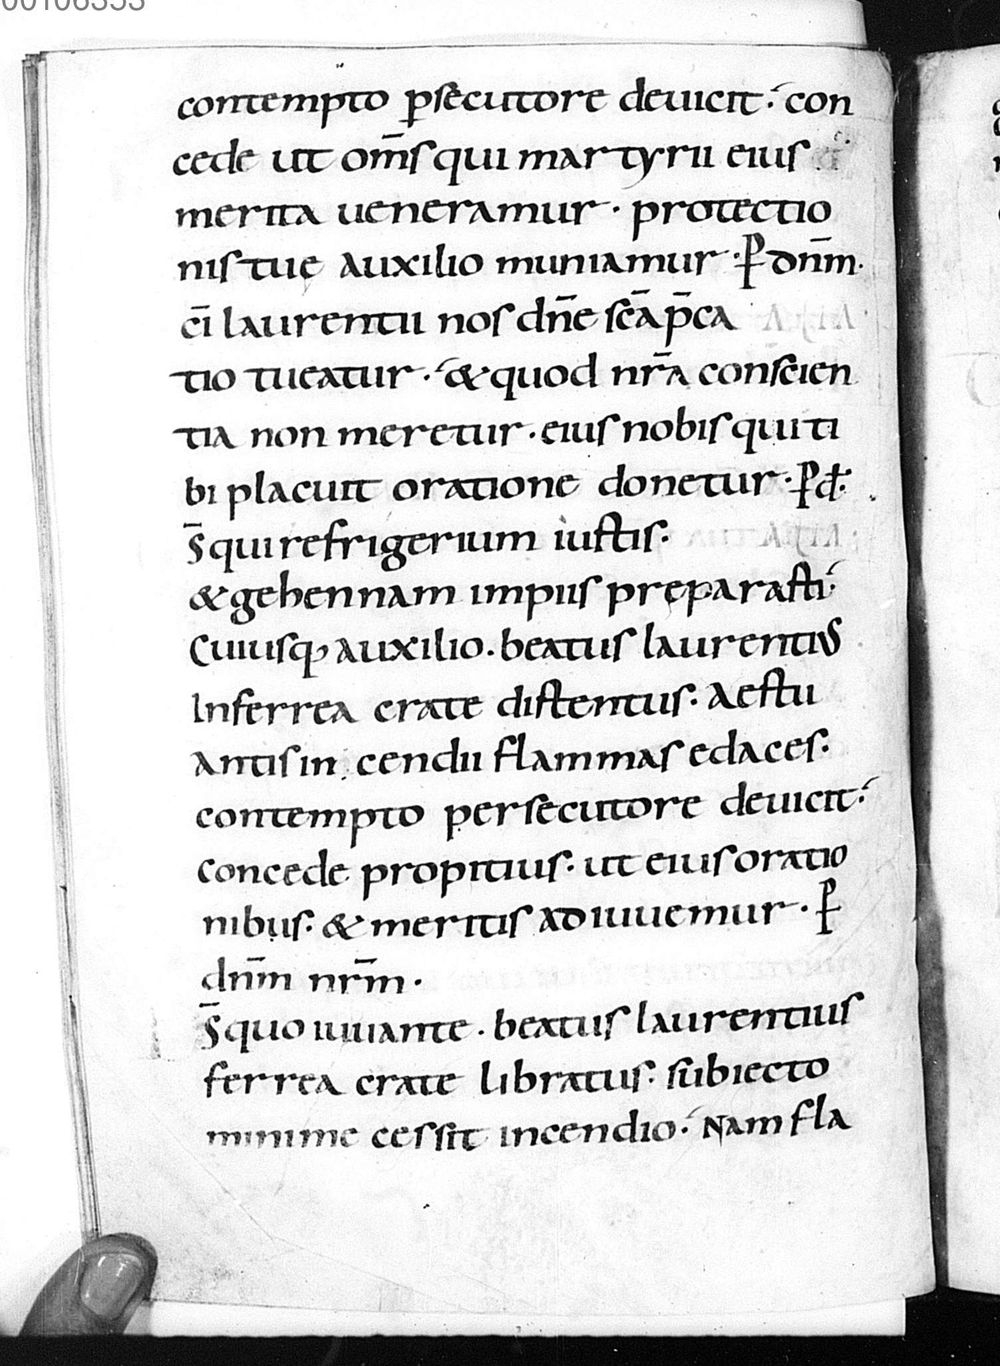 00106353
contempto ꝑsecutore deuicit· con
cede ut om̄s qui martyrii eius
merita ueneramur· protectio
nis tuę auxilio muniamur· P̱ dn̄m·
c̄i laurentii nos dn̄e sc̄a p̄ca
tio tueatur· & quod nr̄a conscien
tia non meretur· eius nobis qui ti
bi placuit oratione donetur· P̱ d·
S̄ qui refrigerium iustis·
& gehennam impiis pręparasti·
Cuiusq; auxilio· beatus laurentius
In ferrea crate distentus· aestu
antis incendii flammas edaces·
contempto persecutore deuicit·
concede propitius· ut eius oratio
nibus· & meritis adiuuemur· P̱
dn̄m nr̄m·
S̄ quo iuuante· beatus laurentius
ferrea crate libratus· subiecto
minime cessit incendio· Nam fla